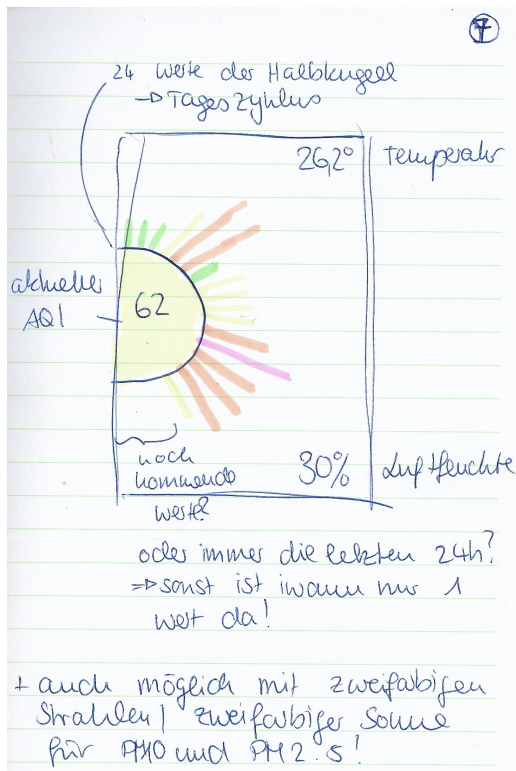 7
24 Werte der Halbkugel
→ Tageszyklus
26,2°
Temperatur
aktueller
AQI
62
noch
kommende
werte?
30%
Luftfeuchte
oder immer die letzten 24h?
⇒ sonst ist iwann nur 1
wert da!
+ auch möglich mit zweifarbigen
Strahlen | zweifarbiger Sonne
für PM10 und PM2.5!